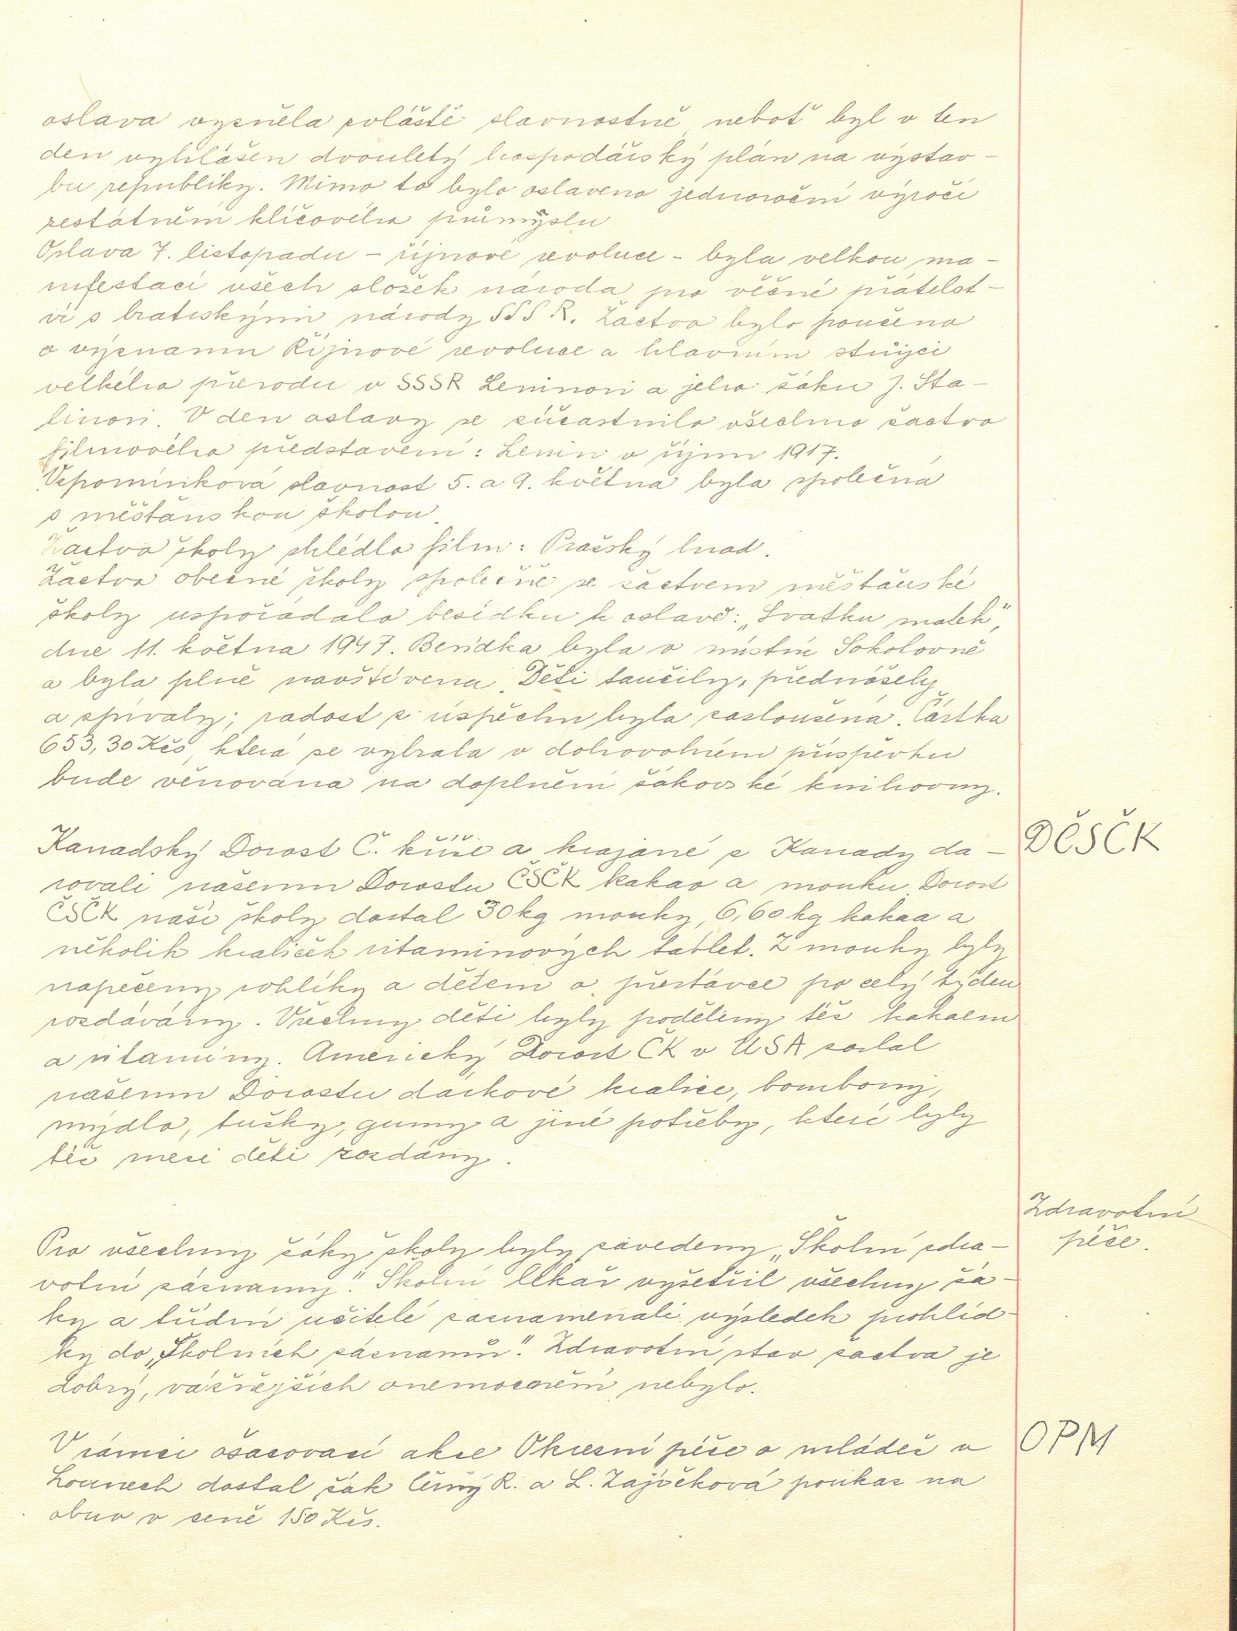 oslava vyzněla zvláště slavnostně neboť byl v ten
den vyhlášen dvouletý hospodářský plán na výstav-
bu republiky. Mimo to bylo oslaveno jednoroční výročí
zestátnění klíčového průmyslu
Oslava 7. listopadu - říjnové revoluce - byla velkou ma-
nifestací všech složek národa pro věčné přátelst-
ví s bratrskými národy SSSR. Žactvo bylo poučeno
o významu Říjnové revoluce a hlavním strůjci
velkého převodu v SSSR Leninovi a jeho žáku J. Sta-
linovi. V den oslavy se zúčastnilo všechno žactvo
filmového představení: Lenin v říjnu 1917.
Vzpomínková slavnost 5. a 9. května byla společná
s měšťanskou školou.
Žactvo školy shlédlo film: Pražský hrad.
Žactvo obecné školy společně se žactvem měšťanské
školy uspořádalo besídku k oslavě: „Svátku matek",
dne 11. května 1947. Besídka byla v místní Sokolovně
a byla plně navštívena. Děti tančily, přednášely
a zpívaly; radost z úspěchu byla zasloužená. Částka
653,30 Kčs, která se vybrala v dobrovolném příspěvku
bude věnována na doplnění žákovské knihovny.
DČSČK
Kanadský Dorost Č. kříže a krajané z Kanady da-
rovali našemu Dorostu ČSČK kakao a mouku. Dorost
ČSČK naší školy dostal 30 kg mouky, 6,60 kg kakaa a
několik krabiček vitaminových tablet. Z mouky byly
napečeny rohlíky a dětem o přestávce po celý týden
rozdávány. Všechny děti byly poděleny též kakaem
a vitaminy. Americký Dorost ČK v USA zaslal
našemu Dorostu dárkové krabice, bombony,
mýdlo, tužky, gumy a jiné potřeby, které byly
též mezi děti rozdány.
Zdravotní
péče.
Pro všechny žáky školy byly zavedeny „Školní zdra-
votní záznamy". Školní lékař vyšetřil všechny žá-
ky a třídní učitelé zaznamenali výsledek prohlíd-
ky do „Školních záznamů". Zdravotní stav žactva je
dobrý, vážnějších onemocnění nebylo.
OPM
V rámci ošacovací akce Okresní péče o mládež v
Lounech dostal žák Černý R. a L. Zajíčková poukaz na
obuv v ceně 150 Kčs.